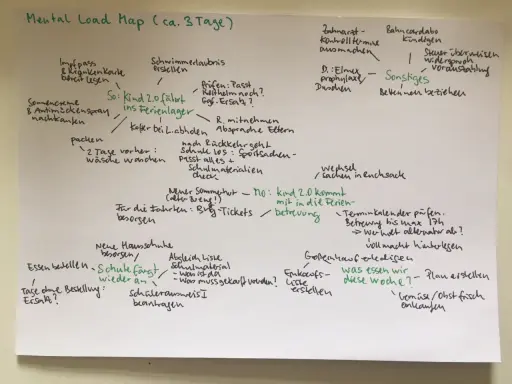 Mental Load Map (ca. 3 Tage)
Impfpass
& Krankenkarte
bereitlegen
Schwimmerlaubnis
erstellen
Prüfen: Passt
Reithelm noch?
Ggf. Ersatz?
So: Kind 2.0 fährt
ins Ferienlager
Sonnencreme
& Antimückenspray
nachkaufen
Koffer bei L. abholen
R. mitnehmen
Absprache Eltern
packen
2 Tage vorher:
wäsche waschen
nach Rückkehr geht
Schule los: Sportsachen-
Passt alles +
Schulmaterialien
check
Zahnarzt-
kontrolltermine
ausmachen
Bahncardabo
kündigen
Steuer überweisen
widerspruch
vorauszahlung
D.: Elmex
prophylaxe
Drachen
Sonstiges
Betten neu beziehen
wechsel
sachen in Rucksack
Neuer Sommerhut
Mo: Kind 2.0 kommt
mit in die Ferien-
betreuung
Für die Fahrten: BVG-Tickets
besorgen
Terminkalender prüfen.
Betreuung bis max 17h
→ wer holt alternativ ab?
Vollmacht hinterlegen
Neue Hausschuhe
besorgen
Abgleich Liste
Schulmaterial
- was ist da
- was muss gekauft werden?
Essen bestellen
Schule fängt
wieder an
Tage ohne Bestellung:
Ersatz?
Schülerausweis I
beantragen
Großeinkauf erledigen
Einkaufs-
Liste
erstellen
was essen wir
diese Woche?
Plan erstellen
Gemüse/Obst frisch
einkaufen